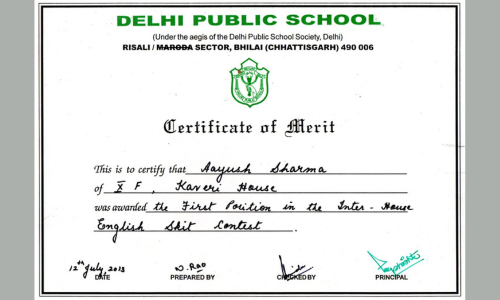 DELHI PUBLIC SCHOOL
(Under the aegis of the Delhi Public School Society, Delhi)
RISALI / MARODA SECTOR, BHILAI (CHHATTISGARH) 490 006
Certificate of Merit
This is to certify that Aayush Sharma
of X F, Kaveri House
was awarded the First Position in the Inter-House
English Skit Contest.
12th July, 2013 W. Rao
DATE PREPARED BY CHECKED BY PRINCIPAL